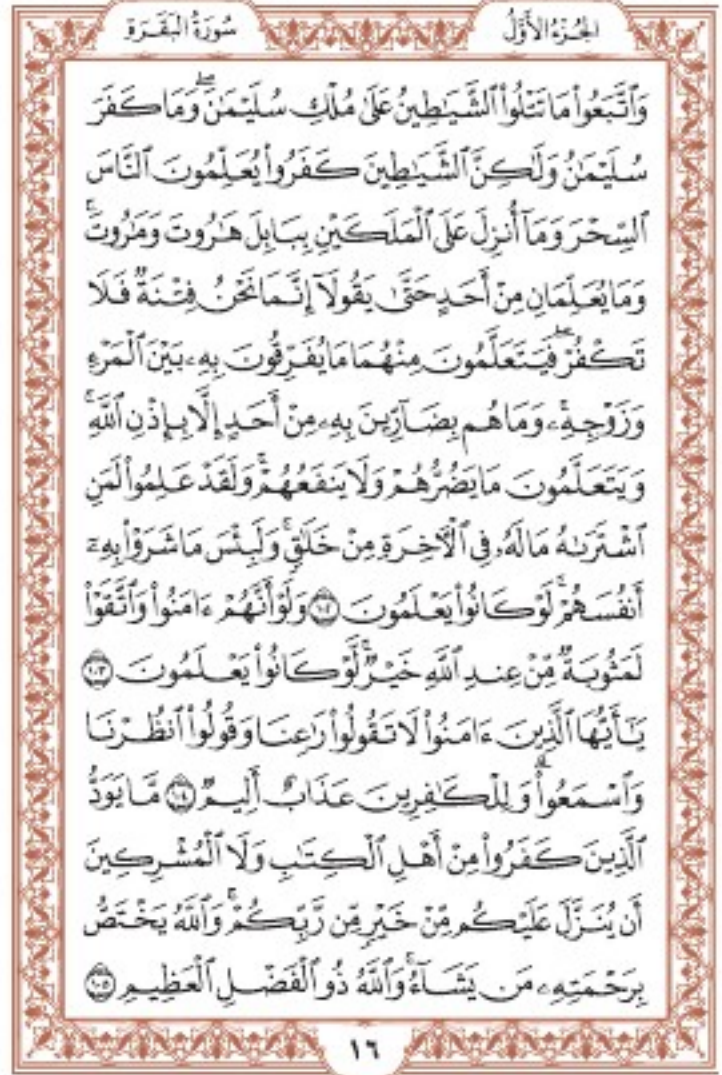 الجُزْءُ الأَوَّلُ
سُورَةُ الْبَقَرَةِ
وَٱتَّبَعُواْ مَا تَتْلُواْ ٱلشَّيَٰطِينُ عَلَىٰ مُلْكِ سُلَيْمَٰنَۖ وَمَا كَفَرَ
سُلَيْمَٰنُ وَلَٰكِنَّ ٱلشَّيَٰطِينَ كَفَرُواْ يُعَلِّمُونَ ٱلنَّاسَ
ٱلسِّحْرَ وَمَآ أُنزِلَ عَلَى ٱلْمَلَكَيْنِ بِبَابِلَ هَٰرُوتَ وَمَٰرُوتَۚ
وَمَا يُعَلِّمَانِ مِنْ أَحَدٍ حَتَّىٰ يَقُولَآ إِنَّمَا نَحْنُ فِتْنَةٌ فَلَا
تَكْفُرْۖ فَيَتَعَلَّمُونَ مِنْهُمَا مَا يُفَرِّقُونَ بِهِۦ بَيْنَ ٱلْمَرْءِ
وَزَوْجِهِۦۚ وَمَا هُم بِضَآرِّينَ بِهِۦ مِنْ أَحَدٍ إِلَّا بِإِذْنِ ٱللَّهِۚ
وَيَتَعَلَّمُونَ مَا يَضُرُّهُمْ وَلَا يَنفَعُهُمْۚ وَلَقَدْ عَلِمُواْ لَمَنِ
ٱشْتَرَىٰهُ مَا لَهُۥ فِى ٱلْءَاخِرَةِ مِنْ خَلَٰقٍۚ وَلَبِئْسَ مَا شَرَوْاْ بِهِۦٓ
أَنفُسَهُمْۚ لَوْ كَانُواْ يَعْلَمُونَ ١٠٢ وَلَوْ أَنَّهُمْ ءَامَنُواْ وَٱتَّقَوْاْ
لَمَثُوبَةٌ مِّنْ عِندِ ٱللَّهِ خَيْرٌۚ لَّوْ كَانُواْ يَعْلَمُونَ ١٠٣
يَٰٓأَيُّهَا ٱلَّذِينَ ءَامَنُواْ لَا تَقُولُواْ رَٰعِنَا وَقُولُواْ ٱنظُرْنَا
وَٱسْمَعُواْۗ وَلِلْكَٰفِرِينَ عَذَابٌ أَلِيمٌ ١٠٤ مَّا يَوَدُّ
ٱلَّذِينَ كَفَرُواْ مِنْ أَهْلِ ٱلْكِتَٰبِ وَلَا ٱلْمُشْرِكِينَ
أَن يُنَزَّلَ عَلَيْكُم مِّنْ خَيْرٍ مِّن رَّبِّكُمْۚ وَٱللَّهُ يَخْتَصُّ
بِرَحْمَتِهِۦ مَن يَشَآءُۚ وَٱللَّهُ ذُو ٱلْفَضْلِ ٱلْعَظِيمِ ١٠٥
١٦